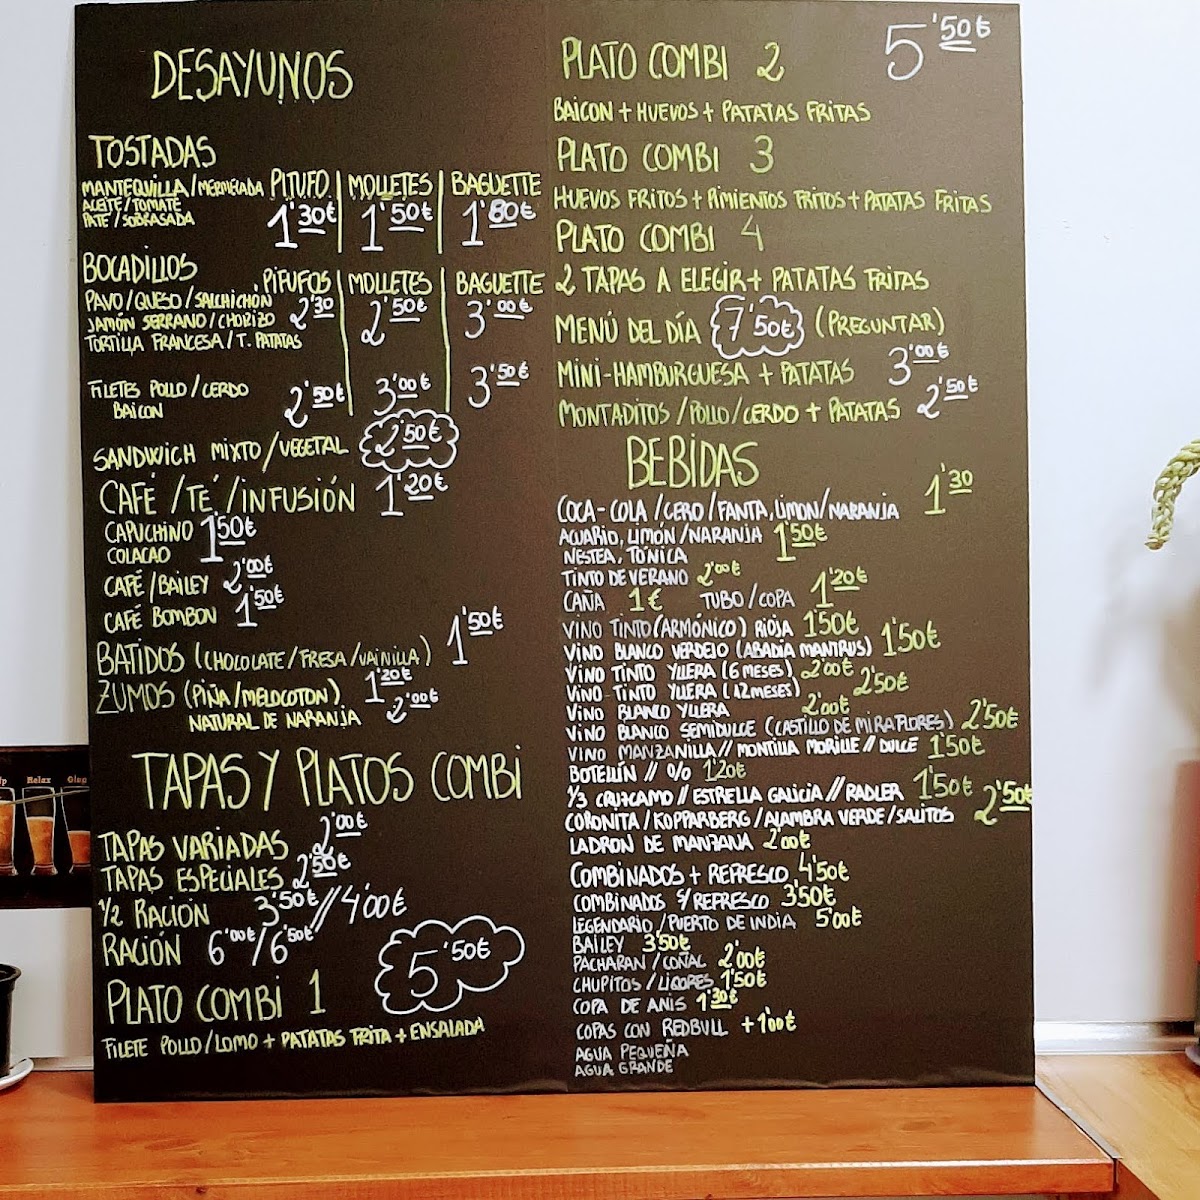 DESAYUNOS
TOSTADAS
MANTEQUILLA/MERMELADA PITUFO MOLLETES BAGUETTE
ACEITE/TOMATE
PATE/SOBRASADA 1'30€ 1'50€ 1'80€
BOCADILLOS PITUFOS MOLLETES BAGUETTE
PAVO/QUESO/SALCHICHÓN
JAMÓN SERRANO/CHORIZO 2'30 2'50€ 3'00€
TORTILLA FRANCESA/T. PATATAS
FILETES POLLO/CERDO 2'50€ 3'00€ 3'50€
BAICON
SANDWICH MIXTO/VEGETAL 2'50€
CAFÉ/TÉ/INFUSIÓN 1'20€
CAPUCHINO 1'50€
COLACAO
CAFÉ/BAILEY 2'00€
CAFÉ BOMBON 1'50€
BATIDOS (CHOCOLATE/FRESA/VAINILLA) 1'50€
ZUMOS (PIÑA/MELOCOTON) 1'20€
NATURAL DE NARANJA 2'00€
TAPAS Y PLATOS COMBI
TAPAS VARIADAS 2'00€
TAPAS ESPECIALES 2'50€
1/2 RACIÓN 3'50€//4'00€
RACIÓN 6'00€/6'50€
PLATO COMBI 1 5'50€
FILETE POLLO/LOMO + PATATAS FRITA + ENSALADA
PLATO COMBI 2 5'50€
BAICON + HUEVOS + PATATAS FRITAS
PLATO COMBI 3
HUEVOS FRITOS + PIMIENTOS FRITOS + PATATAS FRITAS
PLATO COMBI 4
2 TAPAS A ELEGIR + PATATAS FRITAS
MENÚ DEL DÍA 7'50€ (PREGUNTAR)
MINI-HAMBURGUESA + PATATAS 3'00€
MONTADITOS/POLLO/CERDO + PATATAS 2'50€
BEBIDAS
COCA-COLA/CERO/FANTA, LIMON/NARANJA 1'30
ACUARIO, LIMÓN/NARANJA 1'50€
NESTEA, TÓNICA
TINTO DE VERANO 2'00€
CAÑA 1€ TUBO/COPA 1'20€
VINO TINTO (ARMÓNICO) RIOJA 1'50€
VINO BLANCO VERDEJO (ABADIA MANTRUS) 1'50€
VINO TINTO YLLERA (6 MESES) 2'00€
VINO-TINTO YLLERA (12 MESES) 2'50€
VINO BLANCO YLLERA 2'00€
VINO BLANCO SEMIDULCE (CASTILLO DE MIRAFLORES) 2'50€
VINO MANZANILLA//MONTILLA MORILLE//DULCE 1'50€
BOTELLÍN // 0/0 1'20€
1/3 CRUZCAMO//ESTRELLA GALICIA//RADLER 1'50€
CORONITA/KOPPARBERG/ALAMBRA VERDE/SALITOS 2'50€
LADRON DE MANZANA 2'00€
COMBINADOS + REFRESCO 4'50€
COMBINADOS S/REFRESCO 3'50€
LEGENDARIO/PUERTO DE INDIA 5'00€
BAILEY 3'50€
PACHARAN/COÑAL 2'00€
CHUPITOS/LICORES 1'50€
COPA DE ANIS 1'30€
COPAS CON REDBULL +1'00€
AGUA PEQUEÑA
AGUA GRANDE
Relax